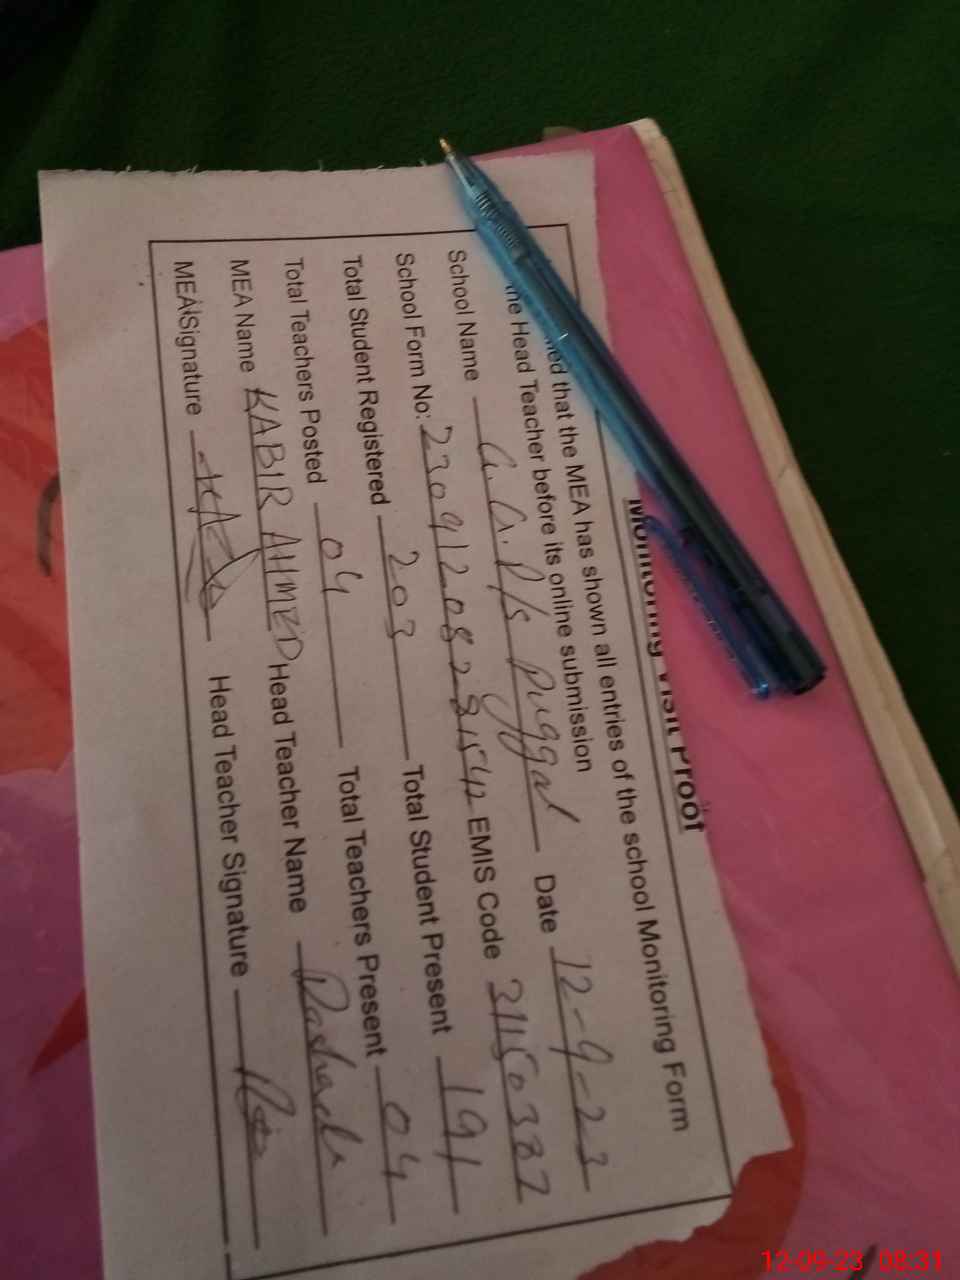 Monitoring Visit Proof
that the MEA has shown all entries of the school Monitoring Form
the Head Teacher before its online submission
School Name G.G.P/S Duggal Date 12-9-23
School Form No: EMIS Code
Total Student Registered 203 Total Student Present 191
Total Teachers Posted 04 Total Teachers Present 04
MEA Name KABIR AHMED Head Teacher Name Rasheeda
MEA Signature Head Teacher Signature
12-09-23 08:31